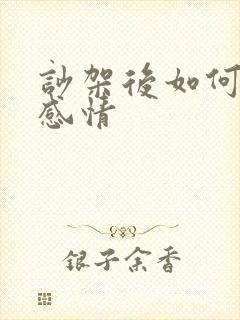 訬架後如何
感情
銀子余香